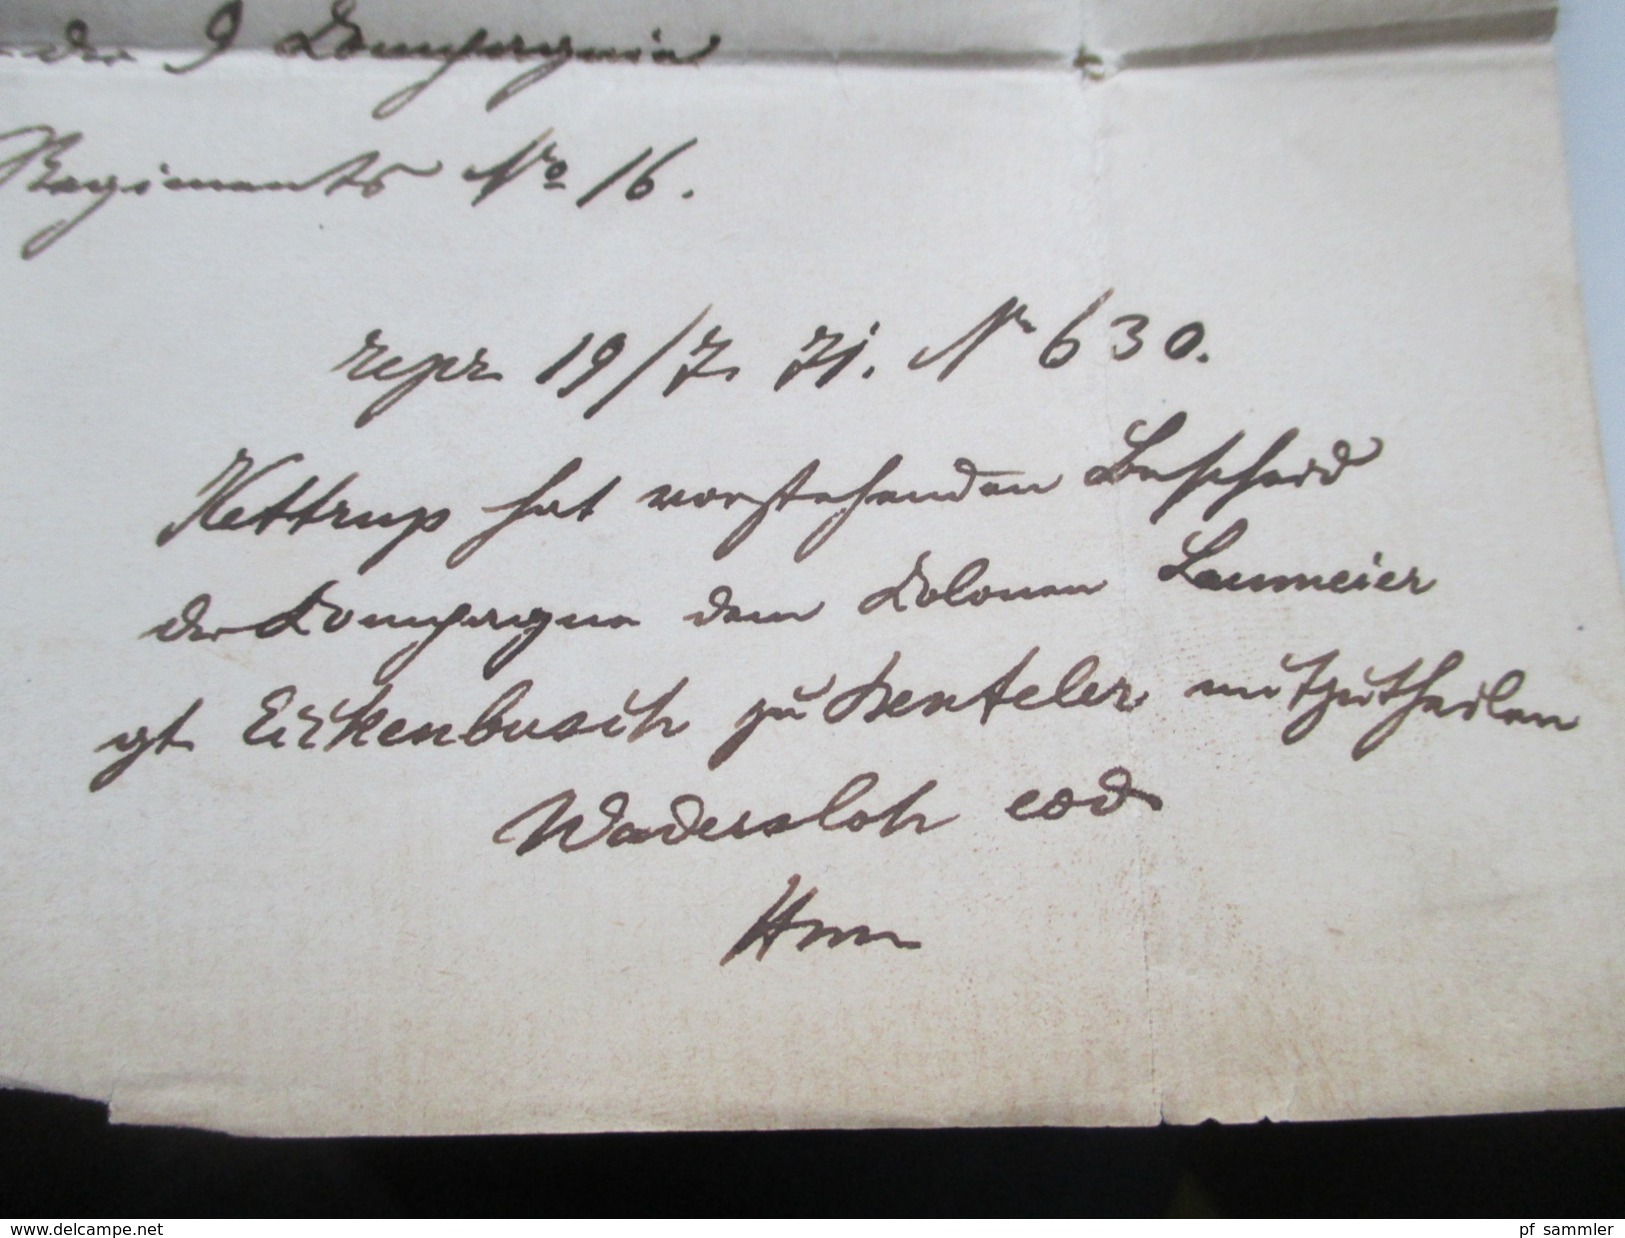 der 9 Compagnie
Regiments No 16.
repr 19/7. 71. N 630.
Kettrup hat vorstehenden Bescheid
der Compagnie dem Colonen Laumeier
gt Eickenbusch zu Benteler mitzutheilen
Wadersloh eod
www.delcampe.net
pf_sammler